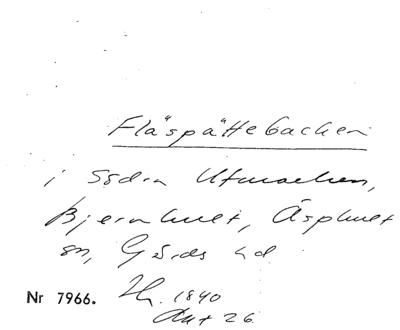 Fläspättebacken
i Södra Utmarken,
Bjernhult, Äsphult
sn, Gärds hd
Nr 7966. 1840
Akt 26.